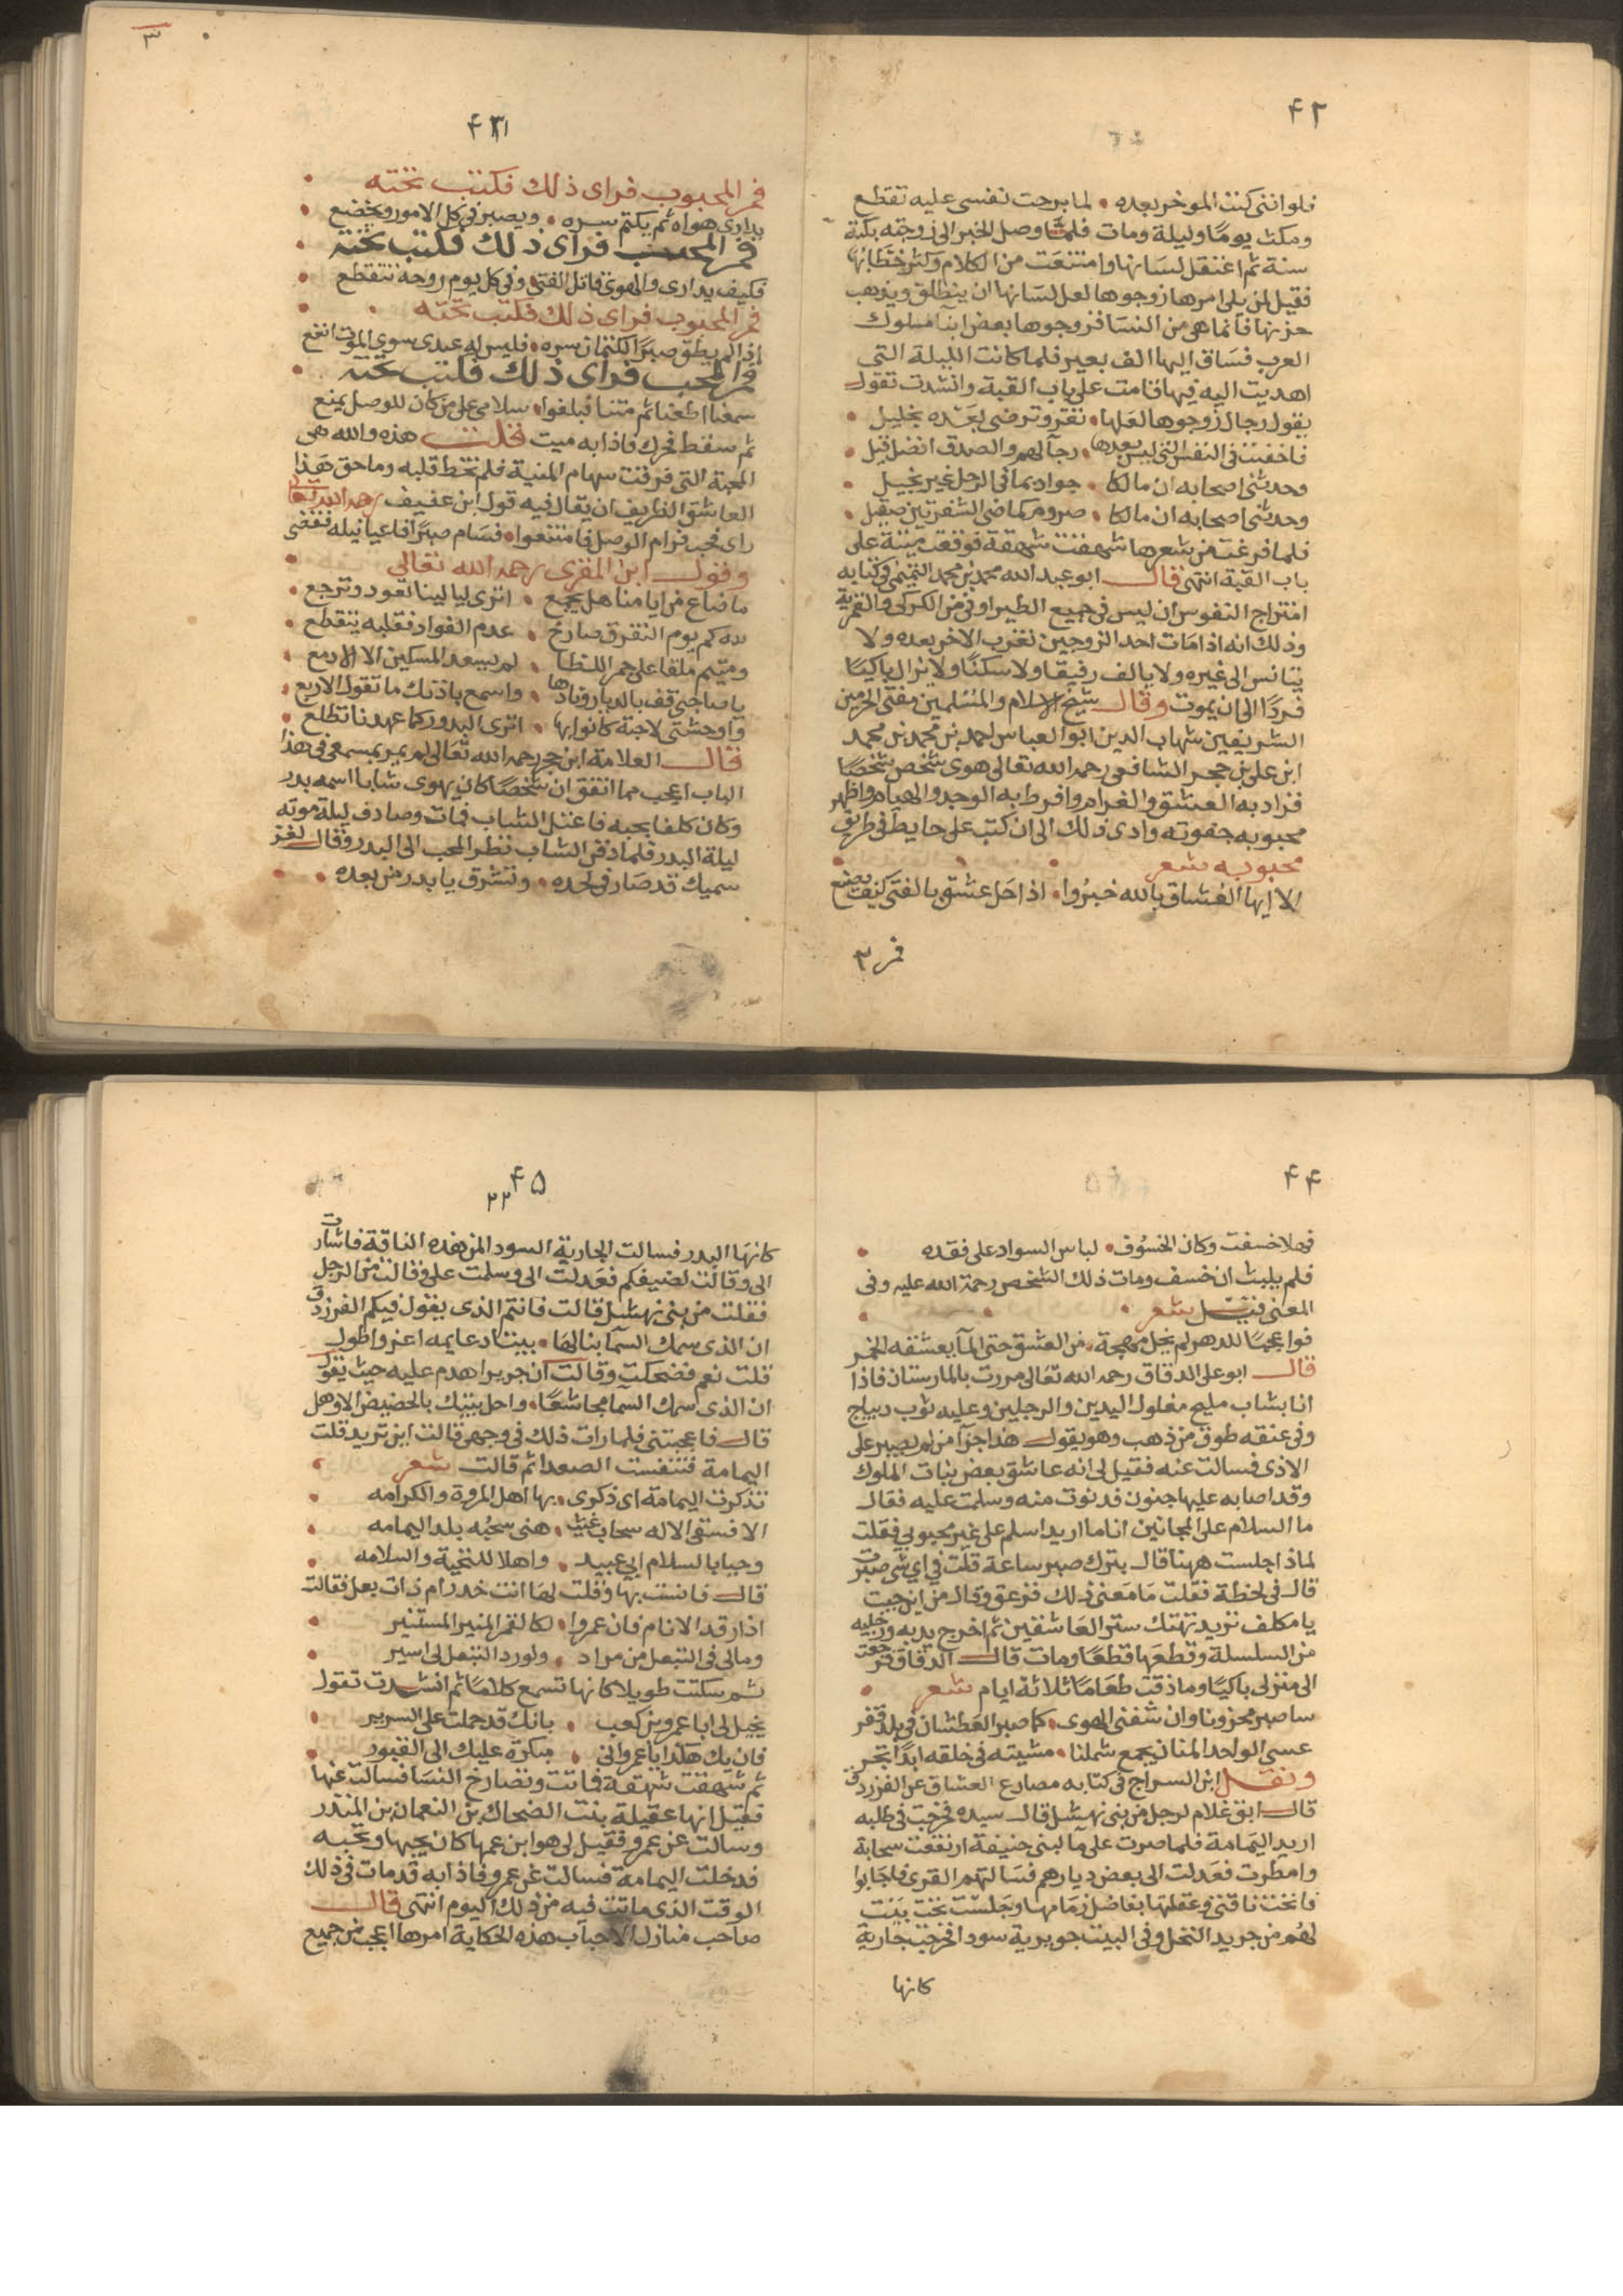 ٤٢
فلوانني كنت الموخر بعده • لما برحت نفسي عليه تقطع
ومكث يومًا وليلة ومات فلما وصل الخبر الى زوجته بكته
سنة ثم اعتقل لسانها وامتنعت من الكلام وكثر خطابها
فقيل لمن يلي امرها زوجوها لعل لسانها ان ينطلق ويذهب
حزنها فانما هي من النسا فزوجوها بعض ابنا ملوك
العرب فساق اليها الف بعير فلما كانت الليلة التي
اهديت اليه فيها قامت على باب القبة وانشدت تقول
يقول رجال زوجوها لعلها • تقر وترضى بعده بخليل •
فاخفت في النفس التي ليس بعدها • رجآ لهم والصدق افضل قيل •
وحدثني اصحابه ان مالكا • جواد بما في الرحل غير بخيل •
وحدثني اصحابه ان مالكا • صروم كماضي الشفرتين صقيل •
فلما فرغت من شعرها شهقت شهقة فوقعت ميتة على
باب القبة انتهى قال ابو عبد الله محمد بن محمد التميمي في كتابه
امتزاج النفوس ان ليس في جميع الطير اوفى من الكركي والقمرية
وذلك انه اذا مات احد الزوجين لغرب الاخر بعده ولا
يتانس الى غيره ولا يالف رفيقا ولا سكنًا ولا يزال باكيًا
فردًا الى ان يموت وقال شيخ الاسلام والمسلمين مفتي الحرمين
الشريفين شهاب الدين ابو العباس احمد بن محمد بن محمد
ابن علي بن حجر الشافعي رحمه الله تعالى هوى شخص شخصًا
فزاد به العشق والغرام وافرط به الوجد والهيام واظهر
محبوبه جفوته وادى ذلك الى ان كتب على حايط في طريق
محبوبه شعر
الا ايها العشاق بالله خبروا • اذا حل عشق بالفتى كيف يصنع
فمر ٣
٣
٤٣
فمر المحبوب فراى ذلك فكتب تحته •
يدارى هواه ثم يكتم سره • ويصبر في كل الامور ويخضع •
فمر المحب فراى ذلك فكتب تحته •
فكيف يدارى والهوى قاتل الفتى • وفي كل يوم روحه تتقطع •
فمر المحبوب فراى ذلك فكتب تحته •
اذا لم يطق صبرًا لكتمان سره • فليس له عندى سوى الموت انفع
فمر المحب فراى ذلك فكتب تحته •
سمعنا اطعنا ثم متنا فبلغوا • سلامي على من كان للوصل يمنع
ثم سقط فحرك فاذا به ميت قلت هذه والله هي
المحبة التي فرقت سهام المنية فلم تخط قلبه وما حق هذا
العاشق الظريف ان يقال فيه قول ابن عفيف رحمه الله تعالى
راى فحب فرام الوصل فامتنعوا • فسام صبرًا فاعيا نيله فقضى
وقول ابن المقرى رحمه الله تعالى •
ما ضاع من ايامنا هل يجمع • اترى ليالينا تعود وترجع •
لله كم يوم التفرق صارخ • عدم الفواد فقلبه يتقطع •
ومتيم ملقا على جمر اللظا • لم يسعد المسكين الا الادمع •
يا صاحبي قف بالديار ونادها • واسمع باذنك ما تقول الاربع •
واوحشتي لاحبة كانوا بها • اترى البدور كما عهدنا تطلع •
قال العلامة ابن حجر رحمه الله تعالى لم يمر بمسمعي في هذا
الباب اعجب مما اتفق ان شخصًا كان يهوى شابا اسمه بدر
وكان كلفا بحبه فاعتل الشاب فمات وصادف ليلة موته
ليلة البدر فلما دفن الشاب نظر المحب الى البدر وقال
سميك قد صار في لحده • وتشرق يا بدر من بعده •
٤٤
فهلا خسفت وكان الخسوف • لباس السواد على فقده •
فلم يلبث ان خسف ومات ذلك الشخص رحمة الله عليه وفي
المعنى قيل شعر •
فواعجبًا للدهر لم يخل مهجة • من العشق حتى المآ يعشقه الخمر
قال ابو على الدقاق رحمه الله تعالى مررت بالمارستان فاذا
انا بشاب مليح مغلول اليدين والرجلين وعليه ثوب ديباج
وفي عنقه طوق من ذهب وهو يقول هذا جزآ من لم يصبر على
الاذى فسالت عنه فقيل لى انه عاشق بعض بنات الملوك
وقد اصابه عليها جنون فدنوت منه وسلمت عليه فقال
ما السلام على المجانين انا ما اريد اسلم على غير محبوبي فقلت
لماذا جلست ههنا قال بترك صبر ساعة قلت في اي شى صبرت
قال في لحظة فقلت ما معنى ذلك فزعق وقال من اين جيت
يا مكلف تريد تهتك ستر العاشقين ثم اخرج يديه ورجليه
من السلسلة وقطعها قطعًا ومات قال الدقاق فرجعت
الى منزلى باكيًا وما ذقت طعامًا ثلاثة ايام شعر •
ساصبر محزونا وان شفني الهوى • كما صبر العطشان في بلد قفر
عسى الواحد المنان يجمع شملنا •
ونقل ابن السراج في كتابه مصارع العشاق عن الفرزدق
قال ابق غلام لرجل من بني نهشل قال سيده فخرجت في طلبه
اريد اليمامة فلما صرت على مآ لبني حنيفة ارتفعت سحابة
وامطرت فعدلت الى بعض ديارهم فسالتهم القرى فاجابوا
فانخت ناقتي وعقلتها بفاضل زمامها وجلست تحت بيت
لهم من جريد النخل وفي البيت جويرية سودا فخرجت جارية
كانها
٤٥
٢٢
كانها البدر فسالت الجارية السودا لمن هذه الناقة فاشارت
الى وقالت لضيفكم فعدلت الى وسلمت على وقالت من الرجل
فقلت من بني نهشل قالت فانتم الذى يقول فيكم الفرزدق
ان الذى سمك السمآ بنا لها • بيتا دعايمه اعز واطول
قلت نعم فضحكت وقالت ان جريرا هدم عليه حيث يقول
ان الذى سمك السما مجاشعًا • واحل بيتك بالحضيض الاوهل
قال فاعجبتني فلما رات ذلك في وجهى قالت اين تريد قلت
اليمامة فتنفست الصعدا ثم قالت شعر •
تذكرت اليمامة اى ذكرى • بها اهل المروة والكرامه •
الا فسقى الاله سحاب غيث • هنى سحبه بلد اليمامه •
وحيا بالسلام ابي عبيد • واهلا للتحية والسلامه •
قال فانست بها وقلت لها انت خدر ام ذات بعل فقالت
اذا رقد الانام فان عمروا • لكالقمر المنير المستنير •
ومالى في التبعل من مراد • ولو رد التبعل لى اسير •
ثم سكتت طويلا كانها تسمع كلامًا ثم انشدت تقول
يخيل لى ابا عمرو بن كعب • بانك قد حملت على السرير •
فان يك هكذا يا عمرو اني • مبكرة عليك الى القبور •
ثم شهقت شهقة فماتت وتصارخ النسا فسالت عنها
فقيل انها عقيلة بنت الضحاك بن النعمان بن المنذر
وسالت عن عمرو فقيل لى هو ابن عمها كان يحبها وتحبه
فدخلت اليمامة فسالت عن عمرو فاذا به قد مات في ذلك
الوقت الذى ماتت فيه من ذلك اليوم انتهى قال
صاحب منازل الاحباب هذه الحكاية امرها اعجب من جميع